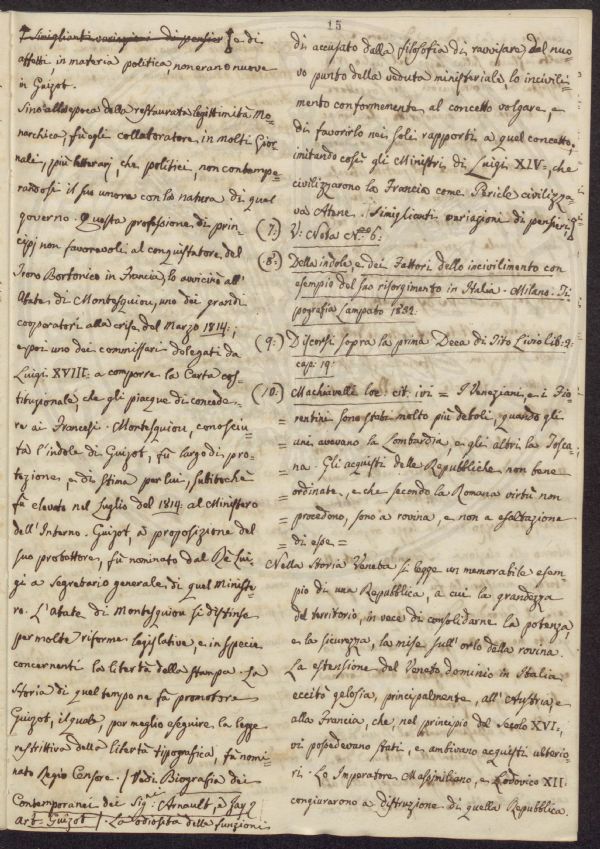 15
[Simiglianti variazioni di pensier] e di
affetti, in materia politica, non erano nuove
in Guizot.
Sino all'epoca della restaurata legittimità Mo=
narchica, fù egli collaboratore in molti Gior=
nali, più letterarj, che politici, non contempe=
randosi il suo umore con la natura di quel
governo. Questa professione di prin=
cipj non favorevoli al conquistatore del
Trono Borbonico in Francia, lo avvicinò all'
Abate di Montesquiou, uno dei grandi
cooperatori alla crise del Marzo 1814:;
e poi uno dei commissari delegati da
Luigi XVIII: a comporre la Carta cos=
tituzionale, che gli piacque di concede=
re ai Francesi. Montesquiou, conosciu=
ta l'indole di Guizot, fù largo di pro=
tezione, e di stima per lui, subitochè
fù elevato nel Luglio del 1814: al Ministero
dell'Interno. Guizot, a proposizione del
suo protettore, fù nominato dal Rè Lui=
gi a Segretario generale di quel Ministe=
ro. L'Abate di Montesquiou si distinse
per molte riforme legislative, e in specie
concernenti la libertà della stampa. La
Storia di quel tempo ne fà promotore
Guizot, il quale, per meglio eseguire la legge
restrittiva della libertà tipografica, fù nomi=
nato Regio Censore. / Vedi Biografia dei
Contemporanei dei Sig.ri Arnault, e Jay &
art: Guizot /. La odiosità delle funzioni
di accusato dalla filosofia di ravvisare dal nuo=
vo punto della veduta ministeriale, lo incivili=
mento conformemente al concetto volgare, e
di favorirlo nei soli rapporti a quel concetto,
imitando così gli Ministri di Luigi XIV:, che
civilizzarono la Francia come Pericle civilizza=
va Atene. Simiglianti variazioni di pensieri]
(7:) V: Nota N.ro 6:
(8:) Della indole, e dei Fattori dello incivilimento con
esempio del suo risorgimento in Italia. Milano. Ti=
pografia Lampato 1832.
(9:) Discorsi sopra la prima Deca di Tito Livio Lib: 2:
cap: 19:
(10:) Machiavelli loc: cit: ivi = I Veneziani, e i Fio=
rentini sono stati molto più deboli, quando gli
= uni avevano la Lombardia, e gli altri la Tosca=
= na. Gli acquisti delle Repubbliche non bene
= ordinate, e che secondo la Romana virtù non
= procedono, sono a rovina, e non a esaltazione
= di esse =
Nella Storia Veneta si legge un memorabile esem=
pio di una Repubblica, a cui la grandezza
del territorio, in vece di consolidarne la potenza,
e la sicurezza, la mise sull'orlo della rovina.
La estensione del Veneto dominio in Italia
eccitò gelosia, principalmente, all'Austria, e
alla Francia, che, nel principio del Secolo XVI:,
vi possedevano stati, e ambivano acquisti ulterio=
ri. Lo Imperatore Massimiliano, e Lodovico XII:
congiurarono a distruzione di quella Repubblica.